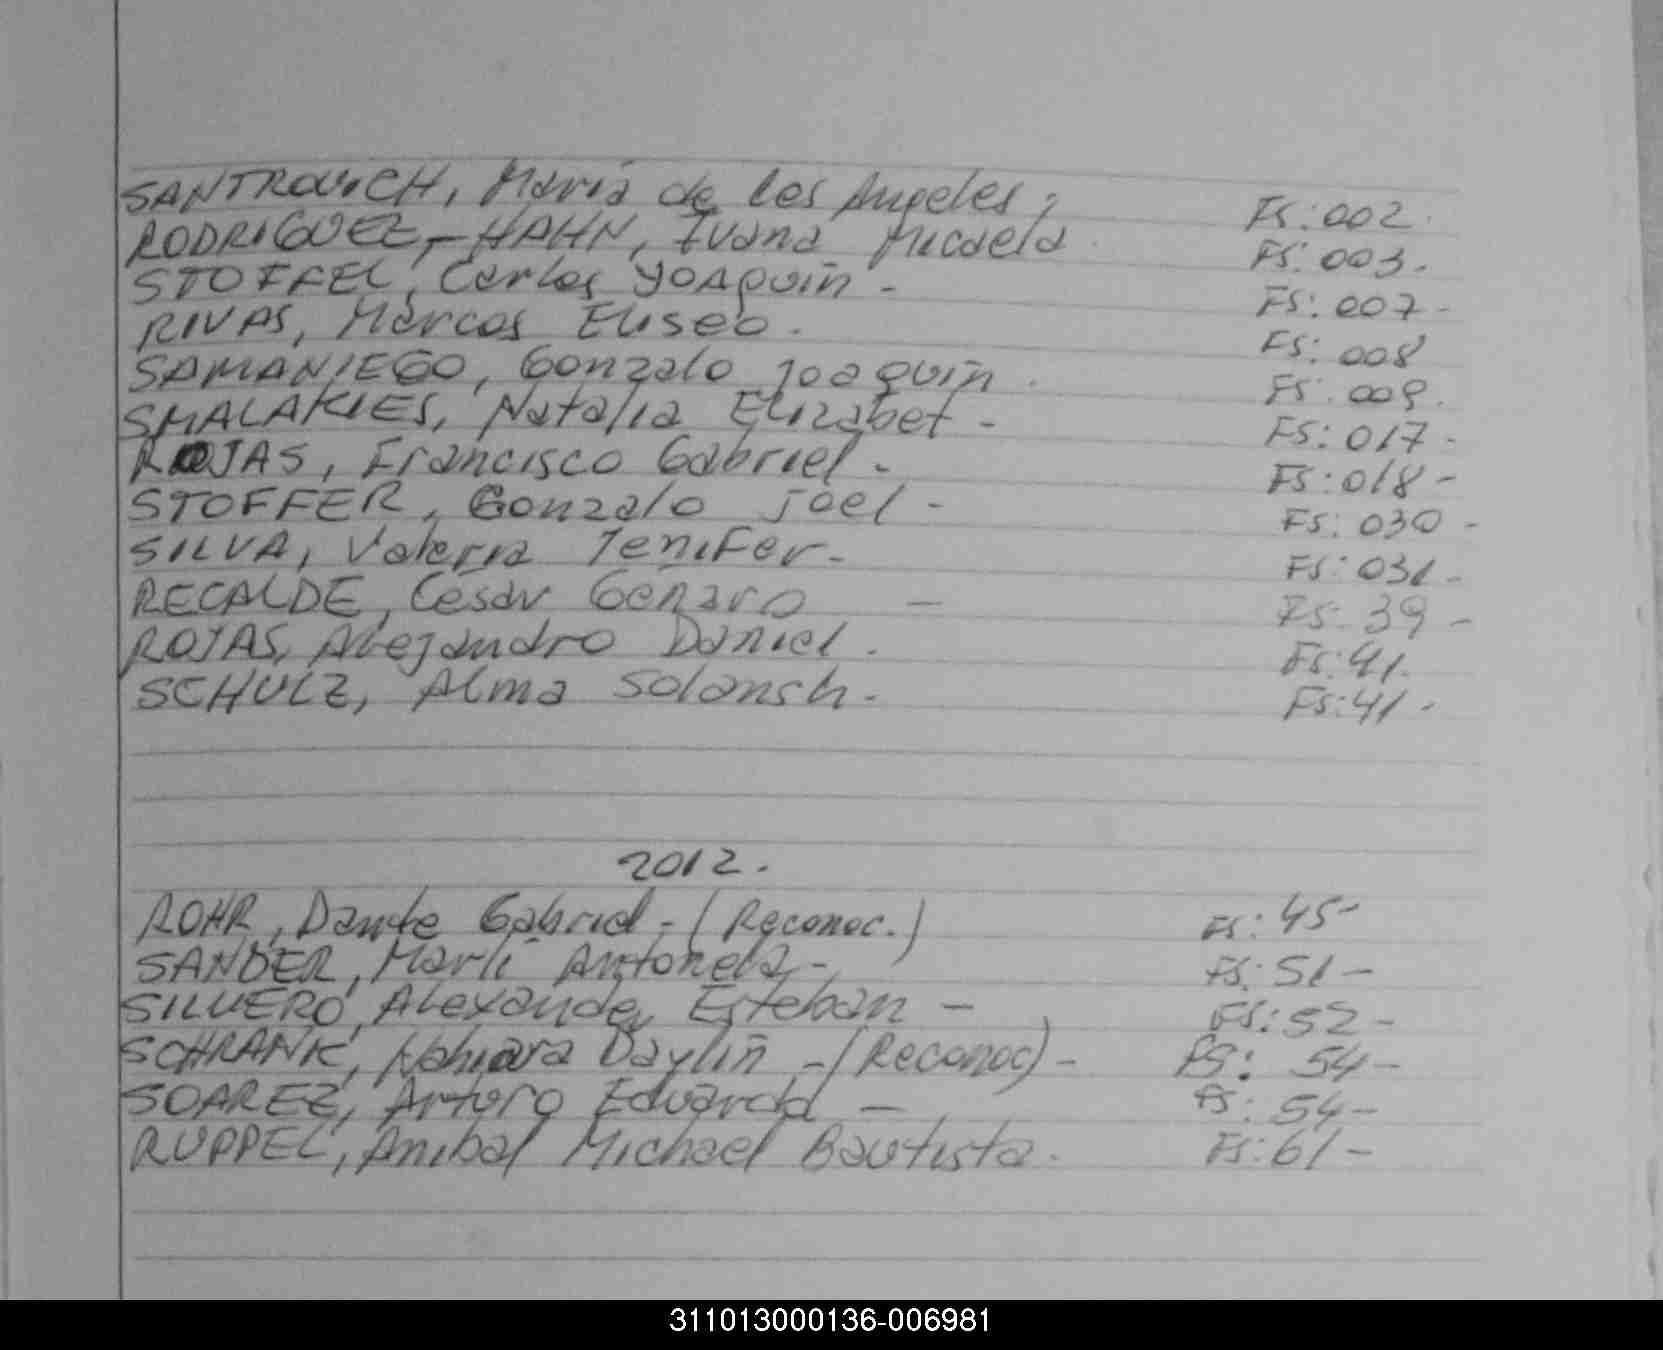 SANTROVICH, María de los Angeles, Fs: 002.
RODRIGUEZ-HAHN, Ivana Micaela. Fs: 003.
STOFFEL, Carlos JOAquin - Fs: 007-
RIVAS, Marcos Eliseo. Fs: 008
SAMANIEGO, Gonzalo Joaquin. Fs: 009.
SMALAKIES, Natalia Elizabet - Fs: 017-
ROJAS, Francisco Gabriel - Fs: 018-
STOFFER, Gonzalo Joel - Fs: 030-
SILVA, Valeria Jenifer- Fs: 031-
RECALDE, Cesar Genaro - Fs: 39-
ROJAS, Alejandro Daniel. Fs: 41.
SCHULZ, Alma Solansh- Fs: 41-
2012.
ROHR, Dante Gabriel-(Reconoc.) Fs: 45-
SANDER, Marli Antonela,- Fs: 51-
SILVERO, Alexander Esteban - Fs: 52-
SCHRANK, Nahiara Daylin -(Reconoc)- Fs: 54-
SOAREZ, Arturo Eduardo - Fs: 54-
RUPPEL, Anibal Michael Bautista. Fs: 61-
311013000136-006981